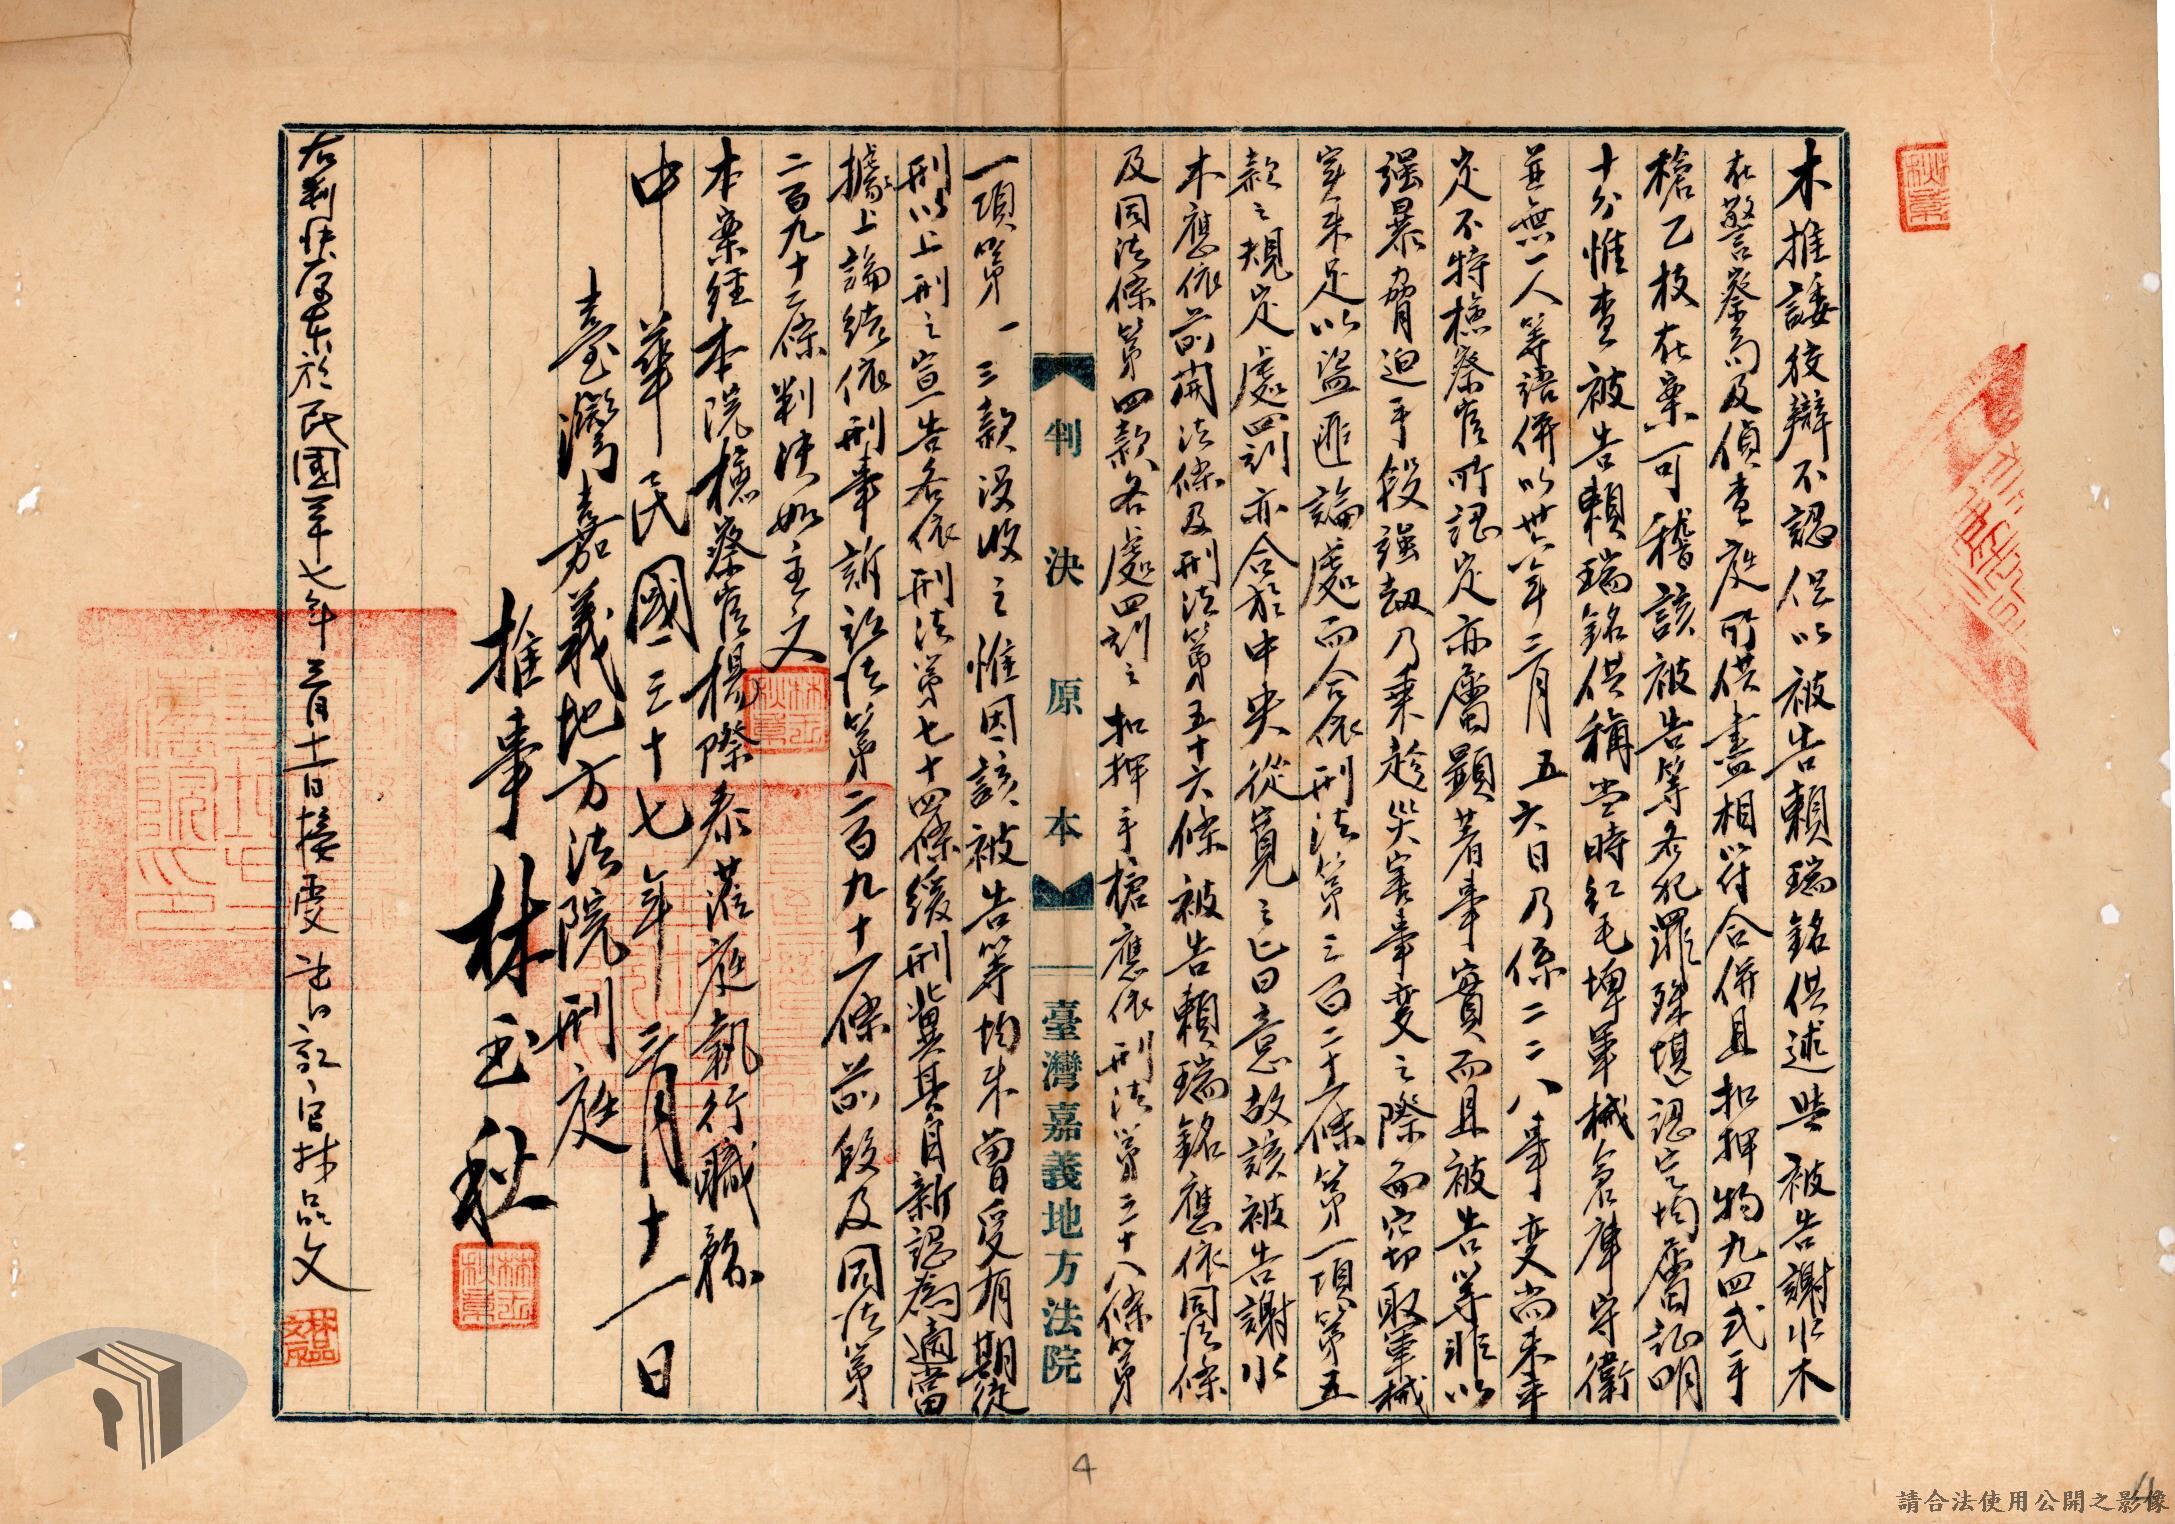 木推諉狡辯不認但以被告賴瑞銘供述與被告謝水木
在警察局及偵查庭所供盡相符合併且扣押物九四式手
槍乙枝在案可稽該被告等各犯罪殊堪認定均屬証明
十分惟查被告賴瑞銘供稱當時紅毛埤軍械倉庫守衛
並無一人等語併以卅六年三月五六日乃係二二八事變尚未平
定不特檢察官所認定亦屬顯著事實而且被告等非以
强暴脅迫手段强劫乃乘趁災害事變之際而竊取軍械
實未足以盜匪論處而合依刑法第三百二十一條第一項第五
款之規定處四刑亦合於中央從寬之旨意故該被告謝水
木應依前開法條及刑法第五十六條被告賴瑞銘應依同法條
及同法條第四款各處四刑之扣押手槍應依刑法第三十八條第
判決原本
臺灣嘉義地方法院
一項第一三款沒收之惟因該被告等均未曾受有期徒
刑以上刑之宣告各依刑法第七十四條緩刑冀其自新認為適當
據上論結依刑事訴訟法第二百九十一條前段及同法第
二百九十二條判決如主文
本案經本院檢察官楊際泰蒞庭執行職務
中華民國三十七年三月十一日
臺灣嘉義地方法院刑庭
推事林玉秋
右判決原本於民國三十七年三月十一日接受書記官林品文
林玉秋章
林玉秋章
4
請合法使用公開之影像